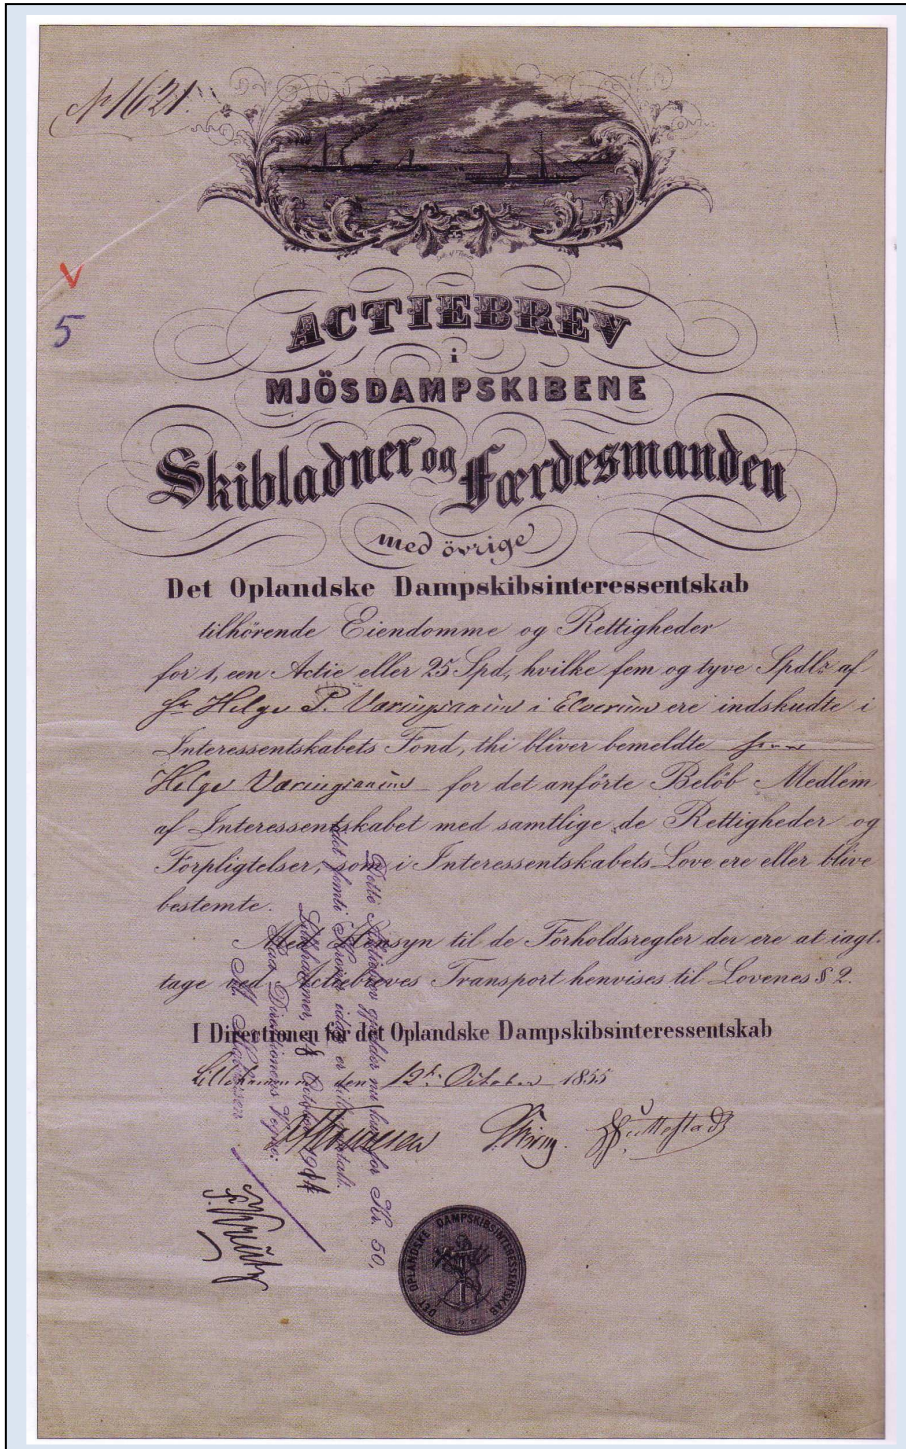 No 1621.
V
5
ACTIEBREV
i
MJÖSDAMPSKIBENE
Skibladner og Færdesmanden
med övrige
Det Oplandske Dampskibsinteressentskab
tilhörende Eiendomme og Rettigheder
for 1, een Actie eller 25 Spd, hvilke fem og tyve Spdlr af
Hr Helge P. i Elverum ere indskudte i
Interessentskabets Fond, thi bliver bemeldte
Helge for det anförte Belöb Medlem
af Interessentskabet med samtlige de Rettigheder og
Forpligtelser, som i Interessentskabets Love ere eller blive
bestemte.
Med Hensyn til de Forholdsregler der ere at iagt-
tage ved Actiebreves Transport henvises til Lovenes § 2.
I Directionen for det Oplandske Dampskibsinteressentskab
Lillehammer den 12te October 1855
Dette Actiebrev gjælder nu kun for Kr. 50,
idet femti Kroner idag er
Lillehammer, October 1944
Paa Directionens Vegne:
DET OPLANDSKE DAMPSKIBSINTERESSENTSKAB